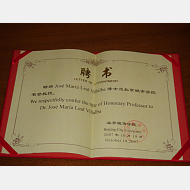 聘书
LETTER OF APPOINTMENT
聘请 José María Leal Villalba 博士为北京城市学院
名誉教授。
We respectfully confer the title of Honorary Professor to
Dr. José María Leal Villalba
北京城市学院
Beijing City University
October 18 2007